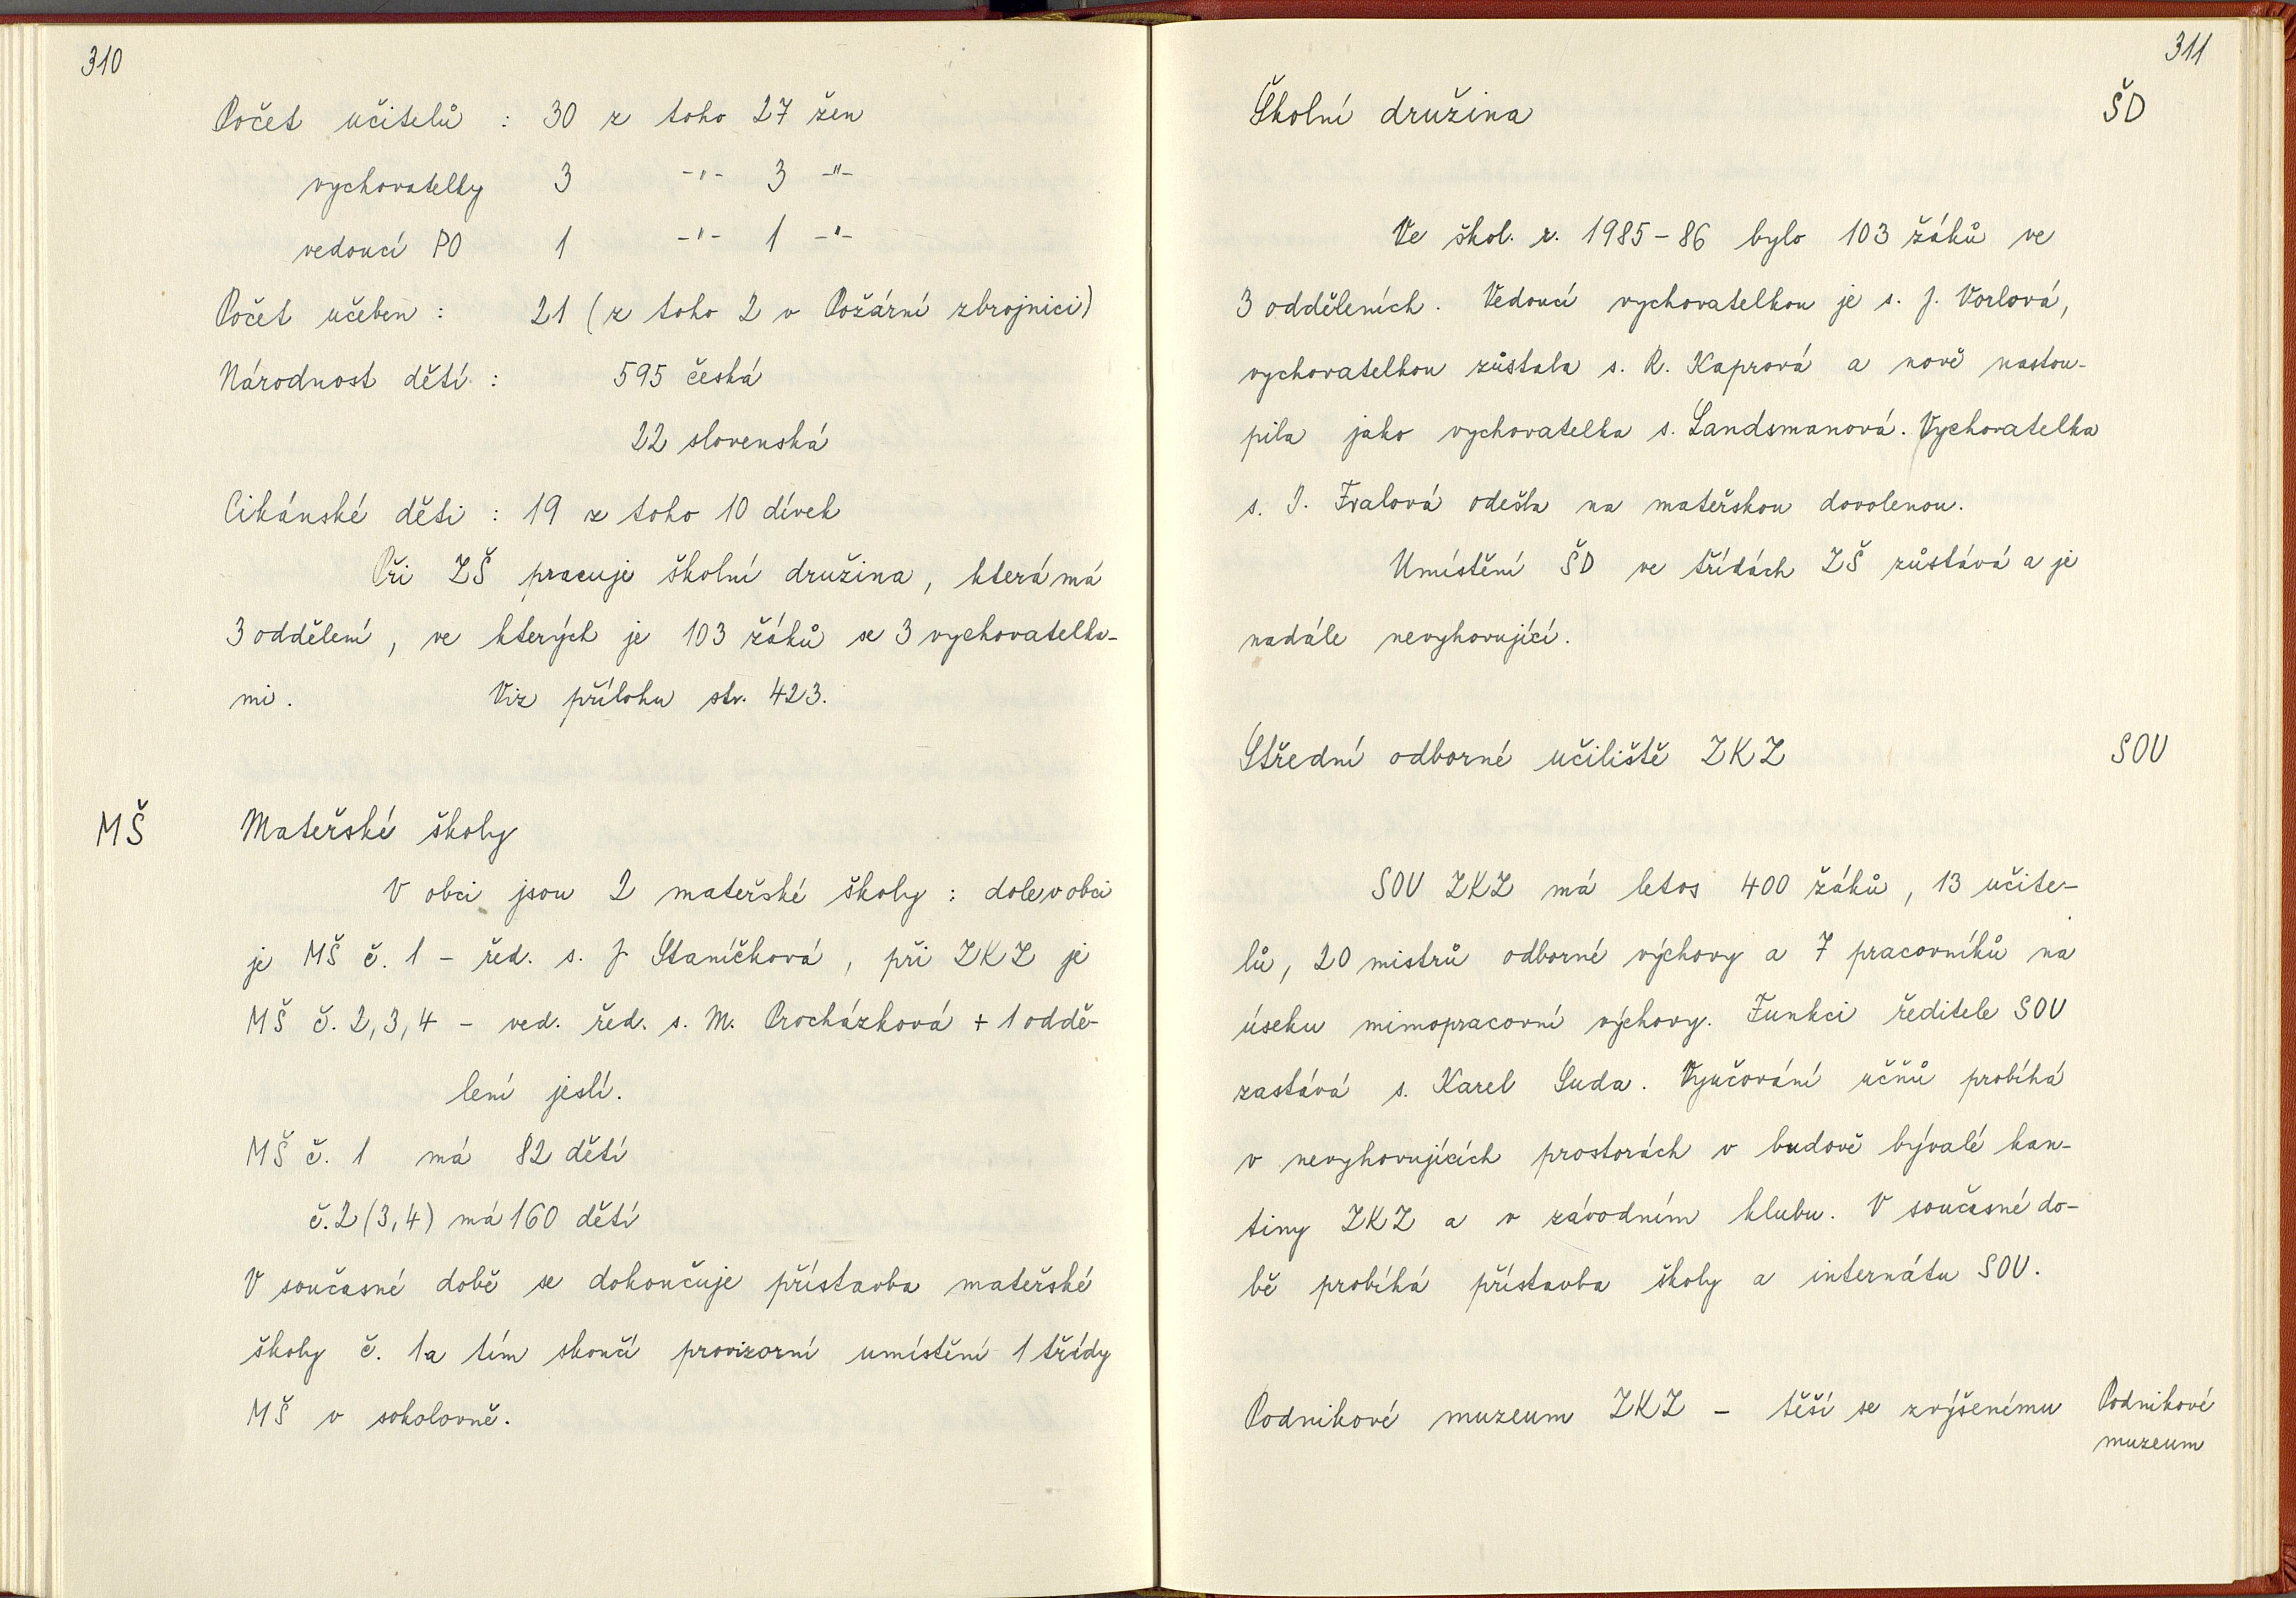 310
Počet učitelů : 30 z toho 27 žen
vychovatelky 3 -"- 3 -"-
vedoucí PO 1 -"- 1 -"-
Počet učeben : 21 (z toho 2 v Požární zbrojnici)
Národnost dětí : 595 česká
22 slovenská
Cikánské děti : 19 z toho 10 dívek
Při ZŠ pracuje školní družina, která má
3 oddělení, ve kterých je 103 žáků se 3 vychovatelka-
mi. Viz přílohu str. 423.
MŠ Mateřské školy
V obci jsou 2 mateřské školy : dole v obci
je MŠ č. 1 – řed. s. J. Staníčková, při ZKZ je
MŠ č. 2, 3, 4 – ved. řed. s. M. Procházková + 1 oddě-
lení jeslí.
MŠ č. 1 má 82 dětí
č. 2 (3, 4) má 160 dětí
V současné době se dokončuje přístavba mateřské
školy č. 1 a tím skončí provizorní umístění 1 třídy
MŠ v sokolovně.
311
Školní družina ŠD
Ve škol. r. 1985-86 bylo 103 žáků ve
3 odděleních. Vedoucí vychovatelkou je s. J. Vorlová,
vychovatelkou zůstala s. R. Kaprová a nově nastou-
pila jako vychovatelka s. Landsmanová. Vychovatelka
s. I. Fralová odešla na mateřskou dovolenou.
Umístění ŠD ve třídách ZŠ zůstává a je
nadále nevyhovující.
Střední odborné učiliště ZKZ SOU
SOU ZKZ má letos 400 žáků, 13 učite-
lů, 20 mistrů odborné výchovy a 7 pracovníků na
úseku mimopracovní výchovy. Funkci ředitele SOU
zastává s. Karel Suda. Vyučování učňů probíhá
v nevyhovujících prostorách v budově bývalé kan-
tiny ZKZ a v závodním klubu. V současné do-
bě probíhá přístavba školy a internátu SOU.
Podnikové muzeum ZKZ – těší se zvýšenému Podnikové
muzeum